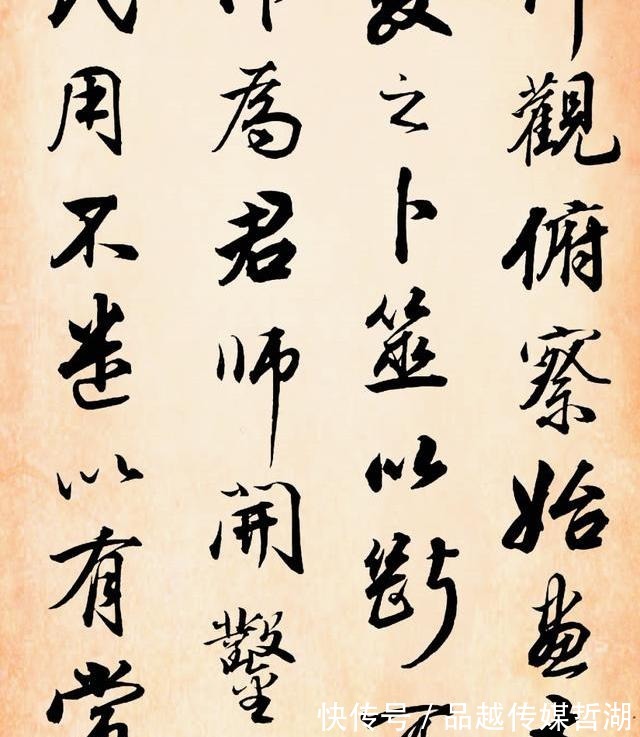 觀俯察始畫
之卜筮以斷
為君師開鑿
民用不迷以有常
快传号 / 品越传媒哲湖